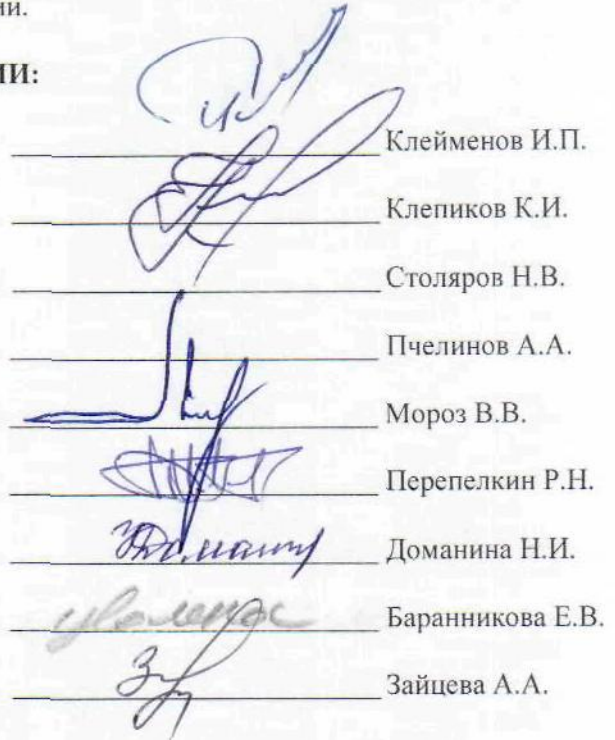 ии.
ИИ:
Клейменов И.П.
Клепиков К.И.
Столяров Н.В.
Пчелинов А.А.
Мороз В.В.
Перепелкин Р.Н.
Доманина Н.И.
уволена Баранникова Е.В.
Зайцева А.А.